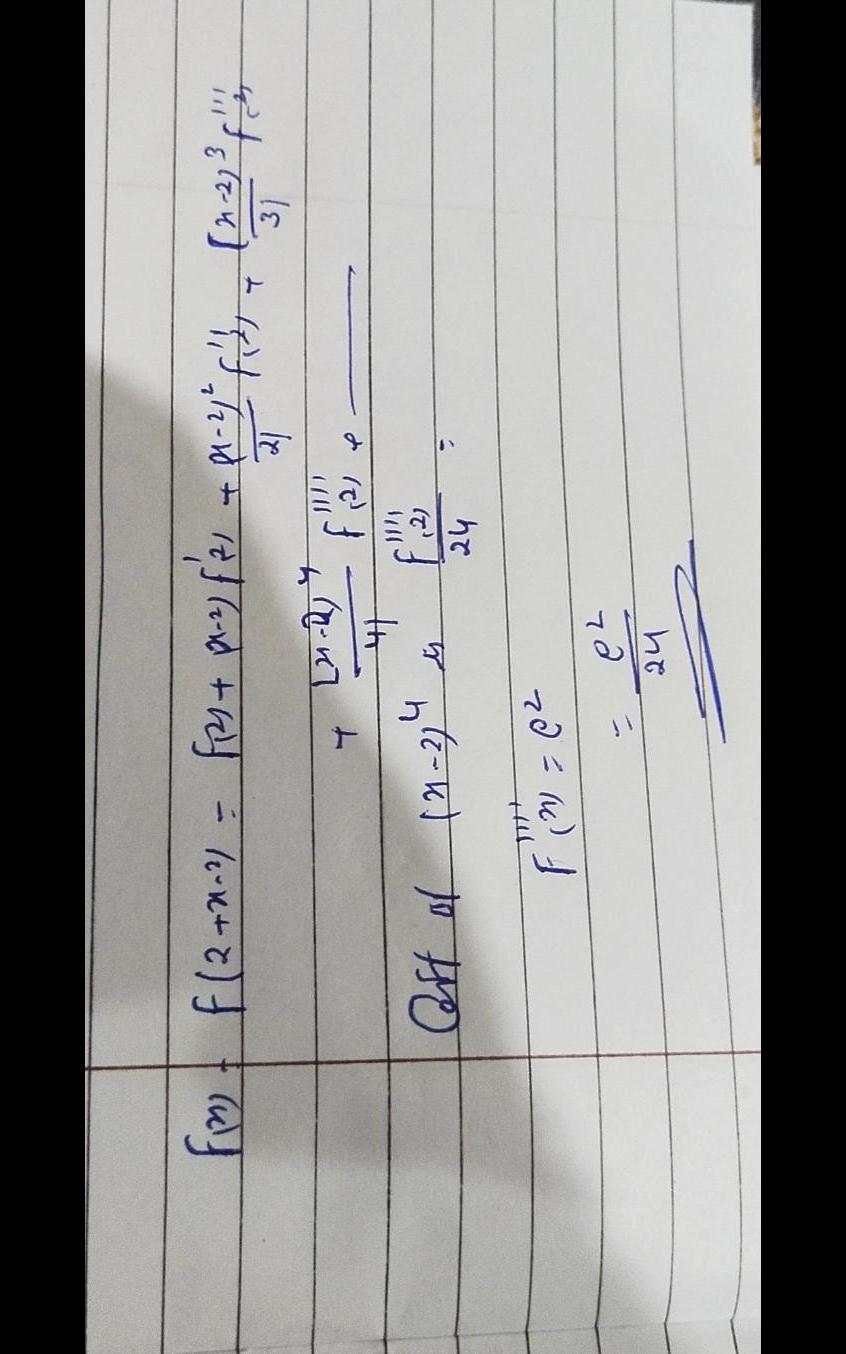 f(x) = f(2+x-2) = f(2) + (x-2) f'(2) + (x-2)²/2! f''(2) + (x-2)³/3! f'''(2)
+ (x-2)⁴/4! f''''(2) + ———
Coff of (x-2)⁴ is f''''(2)/24 =
f''''(x) = e²
= e²/24